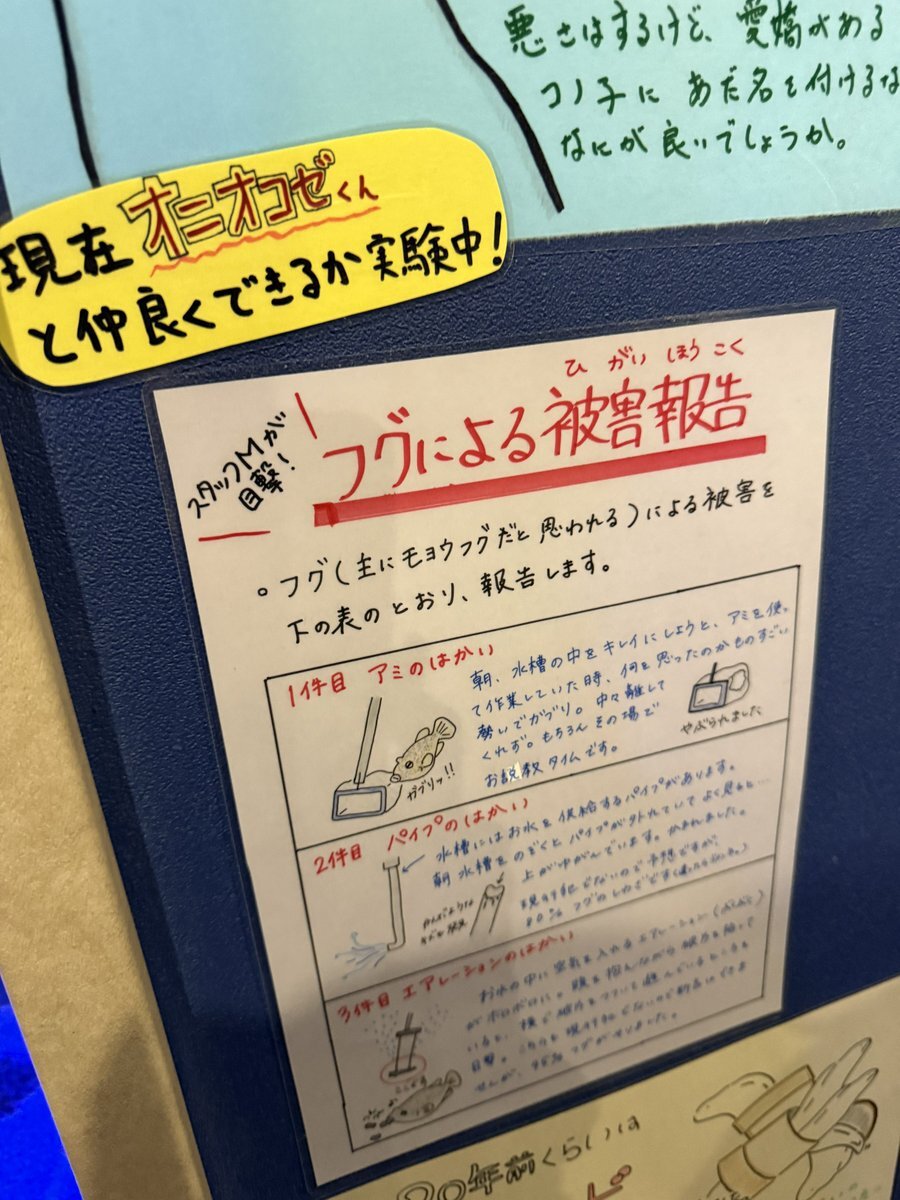 悪さはするけど、愛嬌がある
コノ子に あだ名を付けるな
なにが良いでしょうか。
現在 オニオコゼくん
と仲良くできるか実験中!
スタッフMが
目撃!
ひ がい ほう こく
フグによる被害報告
。フグ(主にモヨウフグだと思われる)による被害を
下の表のとおり、報告します。
1件目 アミのはかい
朝、水槽の中をキレイにしようと、アミを使っ
て作業していた時、何を思ったのかものすごい
勢いでガブリ。中々離して
くれず。もちろんその場で
お説教タイムです。
ガブリッ!!
やぶられました
2件目 パイプのはかい
水槽にはお水を供給するパイプがあります。
朝水槽をのぞくとパイプが外れていてよく見ると…
上がゆがんでいます。かまれました。
現行犯でないので予想ですが、
80% フグのしわざです
3件目 エアレーションのはかい
お水の中に空気を入れるエアレーション
がボロボロに。
目撃。
20年前くらいは